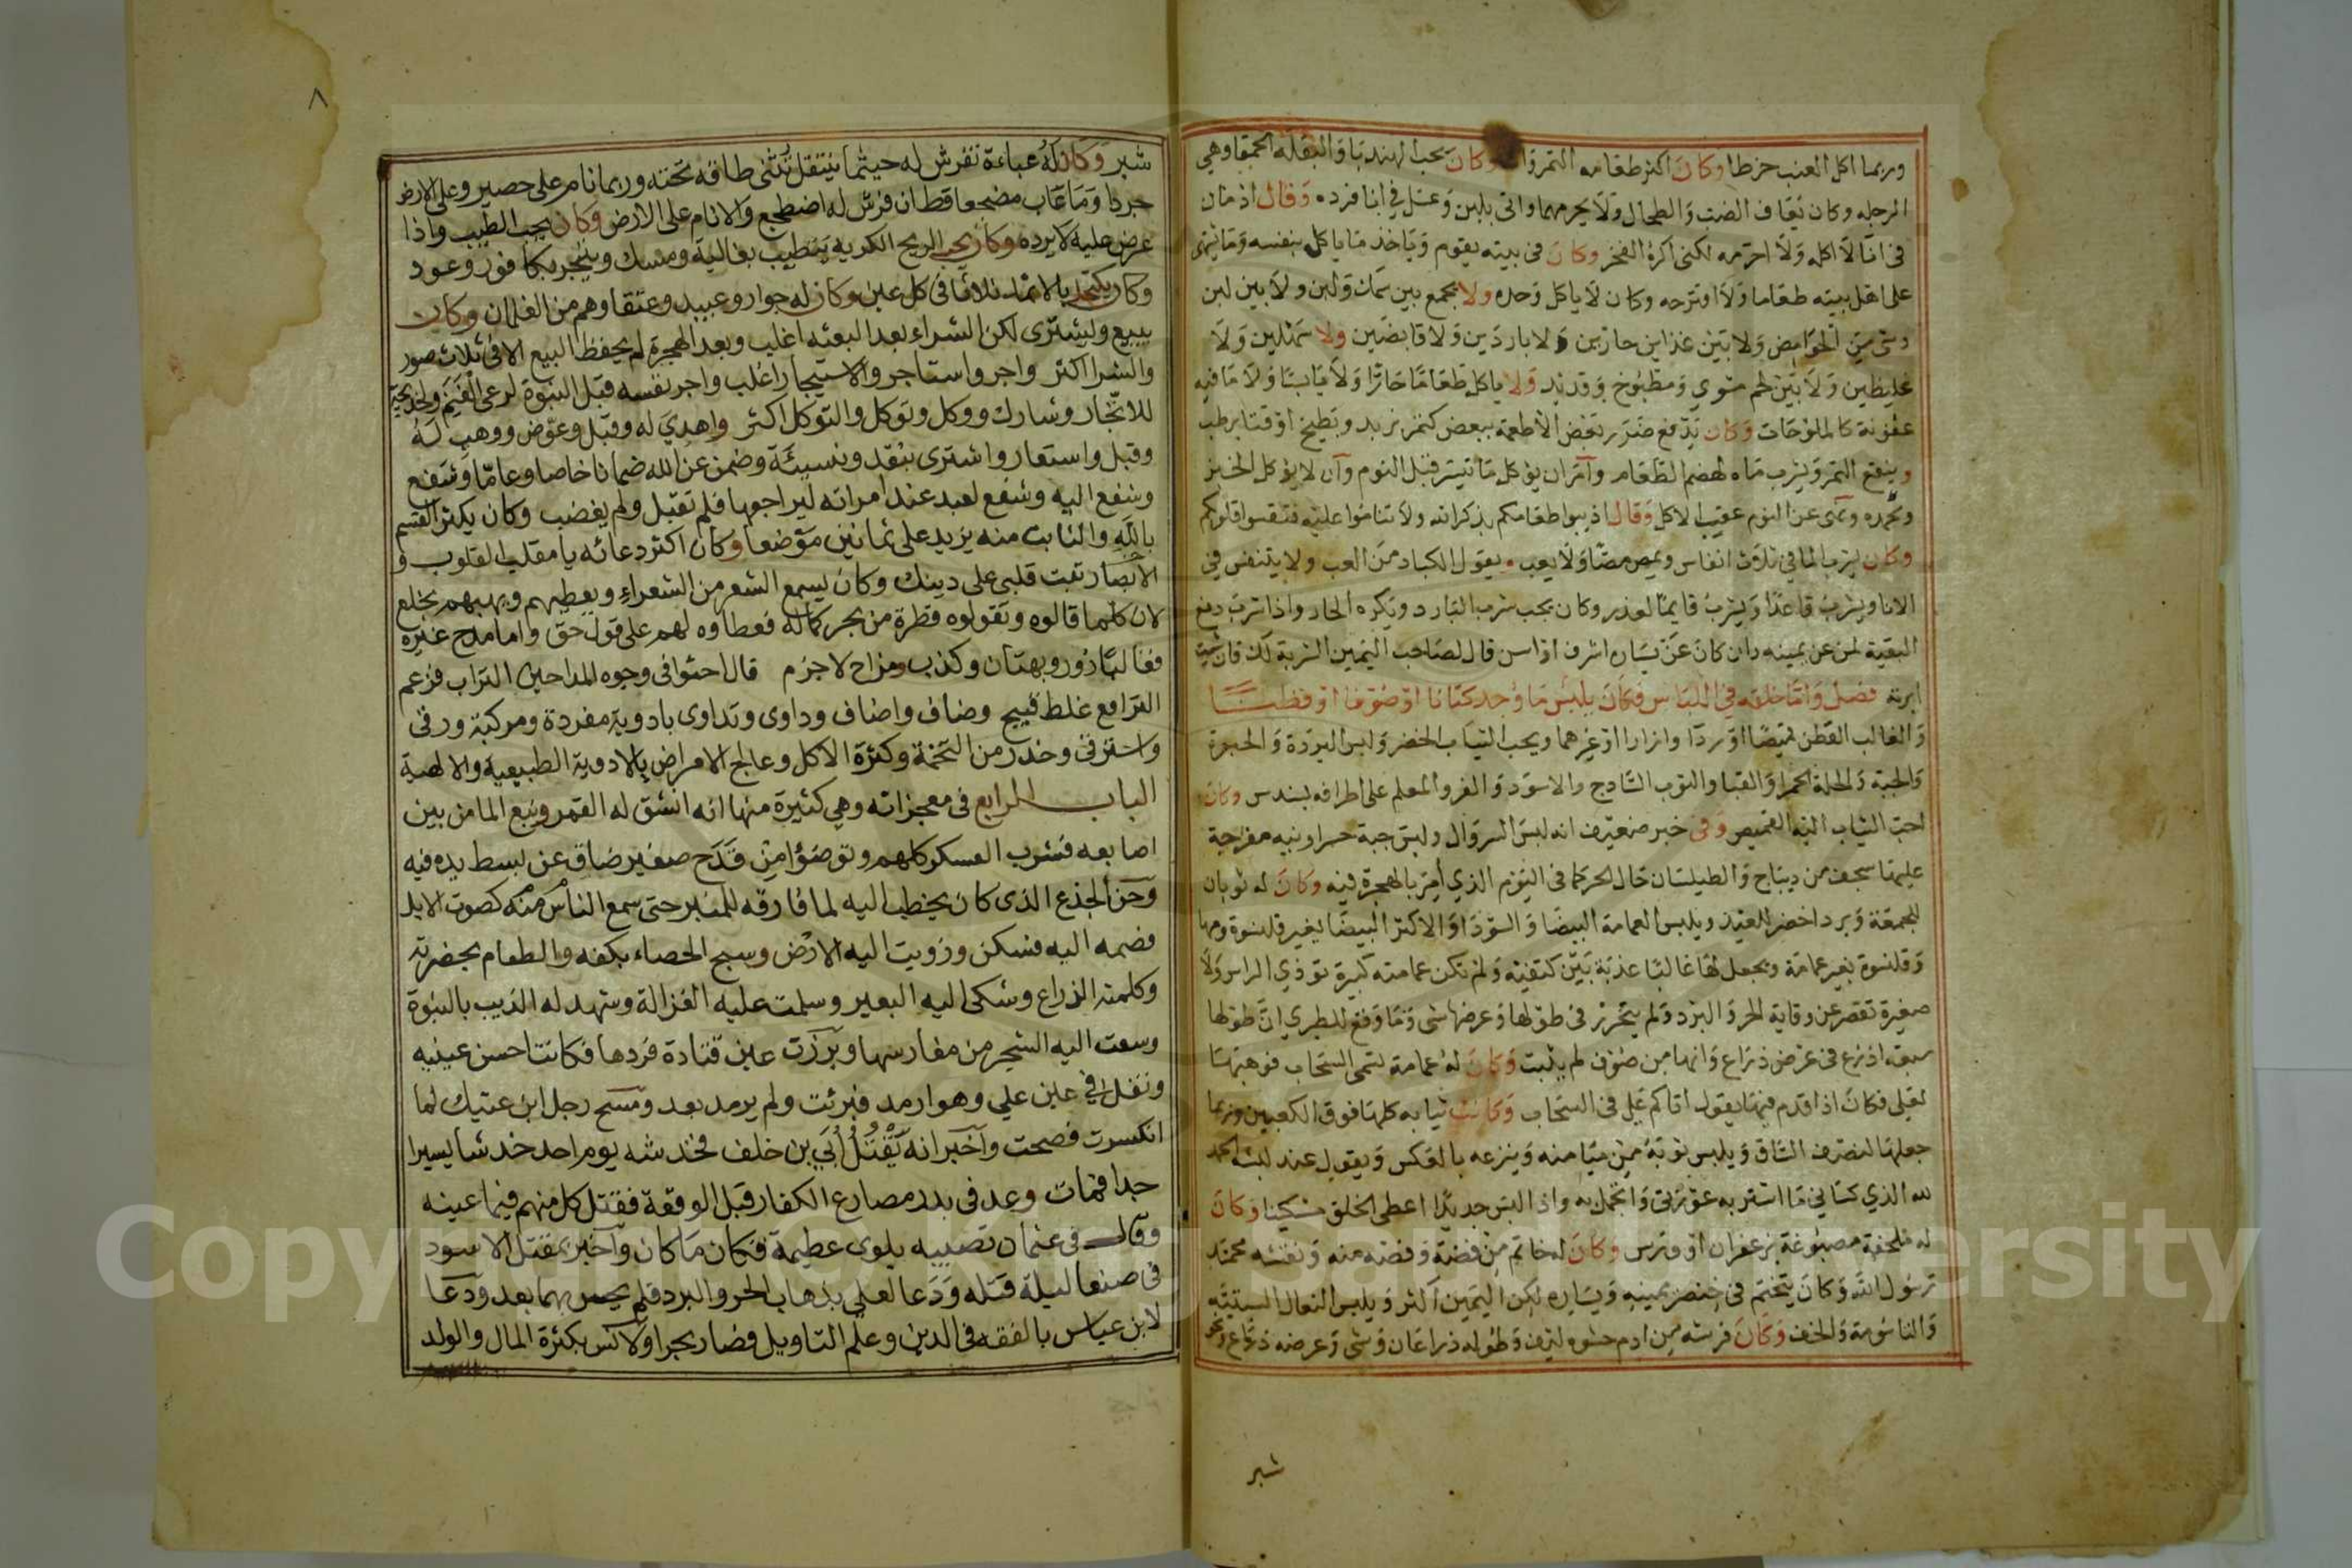 وربما اكل العنب خرطا وكان اكثر طعامه التمر وكان يحب الهندبا والبقله الحمقا وهي
الرجله وكان يعاف الضب والطحال ولا يحرمهما واتى بلبن وعسل في انا فرده وقال اذمان
في انا لا اكله ولا احرمه لكني اكره الفخر وكان في بيته يقوم وياخذ ما ياكل بنفسه وما يتمنى
على اهل بيته طعاما ولا اوترحه وكان لا ياكل وحده ولا يجمع بين سمك ولبن ولا بين لبن
وشي من الحوامض ولا بين غذاين حارين ولا باردين ولا قابضين ولا مسهلين ولا
غليظين ولا بين لحم مشوي ومطبوخ وقديد ولا ياكل طعاما حارا ولا يابسا ولا ما فيه
عفونة كالملوحات وكان يدفع ضرر بعض الاطعمة ببعض كتمر بزبد وبطيخ او قثا برطب
وينقع التمر ويشرب ماه لهضم الطعام وامر ان يؤكل ما تيسر قبل النوم وان لا يؤكل الخبز
ونهى عن النوم عقيب الاكل وقال اذيبوا طعامكم بذكر الله ولا تناموا عليه فتقسوا قلوبكم
وكان يشرب الما في ثلاث انفاس ويمص مصا ولا يعب ويقول الكباد من العب ولا يتنفس في
الانا ويشرب قاعدا ويشرب قايما لعذر وكان يحب شرب البارد ويكره الحار واذا شرب دفع
البقية لمن عن يمينه وان كان عن يساره اشرف او اسن قال لصاحب اليمين الشربة لك فان شيت
اثرته فصل واما خلقه في اللباس فكان يلبس ما وجد كتانا او صوفا او قطنا
والغالب القطن قميصا او ردا وازارا او غيرهما ويحب الثياب الخضر ولبس البردة والحبرة
والجبة والحلة الحمرا والقبا والثوب الساذج والاسود والفرو المعلم على اطرافه بسندس وكان
احب الثياب اليه القميص وفي خبر ضعيف انه لبس السروال ولبس جبة خسراونيه مفرجة
عليها سجف من ديباج والطيلسان حال الحر كما في اليوم الذي امر بالهجرة فيه وكان له ثوبان
للجمعة وبردا خضر للعيد ويلبس العمامة البيضا والسودا والاكثر البيضا بغير قلنسوة وبها
وقلنسوة بغير عمامة ويجعل لها غالبا عذبة بين كتفيه ولم تكن عمامته كبيرة توذي الراس ولا
صغيرة تقصر عن وقاية الحر والبرد ولم يتحرر في طولها وعرضها شي وما وقع للطبري ان طولها
سبعة اذرع في عرض ذراع وانها من صوف لم يثبت وكان له عمامة تسمى السحاب فوهبها
لعلي فكان اذا قدم فيها يقول اتاكم علي في السحاب وكانت ثيابه كلها فوق الكعبين وربما
جعلها لنصف الساق ويلبس ثوبه من ميامنه وينزعه بالعكس ويقول عند لبسه الحمد
لله الذي كساني ما استر به عورتي واتجمل به واذا البس جديدا اعطى الخلق مسكينا وكان
له ملحفة مصبوغة بزعفران او ورس وكان له خاتم من فضة وفصه منه ونقشه محمد
رسول الله وكان يتختم في خنصر يمينه ويساره لكن اليمين اكثر ويلبس النعال السبتيه
والتاسومة والخف وكان فرشه من ادم حشوه ليف وطوله ذراعان وشي وعرضه ذراع ونحو
شبر
٨
شبر وكان له عباءة تفرش له حيثما ينتقل تثنى طاقه تحته وربما نام على حصير وعلى الارض
جردا وما عاب مضجعا قط ان فرش له اضطجع والا نام على الارض وكان يحب الطيب واذا
عرض عليه لا يرده وكان يحب الريح الكريه يتطيب بغالية ومسك ويتبخر بكافور وعود
وكان يكتحل بالاثمد ثلاثا في كل عين وكان له جوار وعبيد وعتقا وهم من الغلمان وكان
يبيع ويشترى لكن الشراء بعد البعثه اغلب وبعد الهجرة لم يحفظ البيع الا في ثلاث صور
والشرا اكثر واجر واستاجر والاستيجار اغلب واجر نفسه قبل النبوة لرعى الغنم ولخديجة
للاتجار وشارك ووكل وتوكل والتوكل اكثر واهدي له وقبل وعوض ووهب له
وقبل واستعار واشترى بنقد ونسيئة وضمن عن الله ضمانا خاصا وعاما وشفع
وشفع اليه وشفع لعبد عند امراته ليراجعها فلم تقبل ولم يغضب وكان يكثر القسم
بالله والثابت منه يزيد على ثمانين موضعا وكان اكثر دعائه يا مقلب القلوب و
الابصار ثبت قلبى على دينك وكان يسمع الشعر من الشعراء ويعطيهم ويهبهم بخلع
لان كلما قالوه وتقولوه قطرة من بحر كماله فعطاوه لهم على قول حق واما مدح غيره
فغالبا زور وبهتان وكذب ومزاح لا جزم قال احثوا فى وجوه المداحين التراب فزعم
الترافع غلط قبيح وضاف واضاف وداوى وتداوى بادوية مفردة ومركبة ورقى
واسترقى وحذر من التخمة وكثرة الاكل وعالج الامراض بالادوية الطبيعية والالهية
الباب الرابع فى معجزاته وهي كثيرة منها انه انشق له القمر ونبع الما من بين
اصابعه فشرب العسكر كلهم وتوضؤا من قدح صغير ضاق عن بسط يده فيه
وحن الجذع الذى كان يخطب اليه لما فارقه للمنبر حتى سمع الناس منه كصوت الابل
فضمه اليه فسكن وزويت اليه الارض وسبح الحصاء بكفه والطعام بحضرته
وكلمته الذراع وشكى اليه البعير وسلمت عليه الغزالة وشهد له الذيب بالنبوة
وسعت اليه الشجر من مغارسها وبرزت عين قتادة فردها فكانت احسن عينيه
وتفل في عين علي وهو ارمد فبرئت ولم يرمد بعد ومسح رجل ابن عتيك لما
انكسرت فصحت واخبر انه يقتل ابي بن خلف فخدشه يوم احد خدشا يسيرا
جدا فمات وعد فى بدر مصارع الكفار قبل الوقعة فقتل كل منهم فيما عينه
وقال فى عثمان تصيبه بلوى عظيمة فكان ما كان واخبر بمقتل الاسود
فى صنعا ليلة قتله ودعا لعلي بذهاب الحر والبرد فلم يحس بهما بعد ودعا
لابن عباس بالفقه فى الدين وعلم التاويل فصار بحرا ولانس بكثرة المال والولد
Copyright © King Saud University